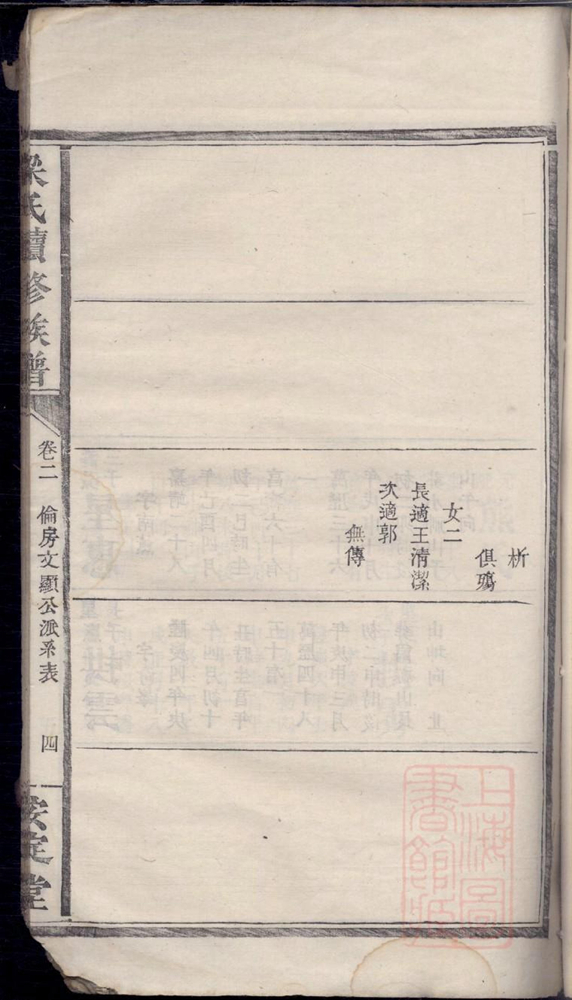 析
俱殤
女二
長適王清潔
次適郭
無傳
梁氏續修族譜
卷二
倫房文顯公派系表
四
安定堂
上海圖書館藏